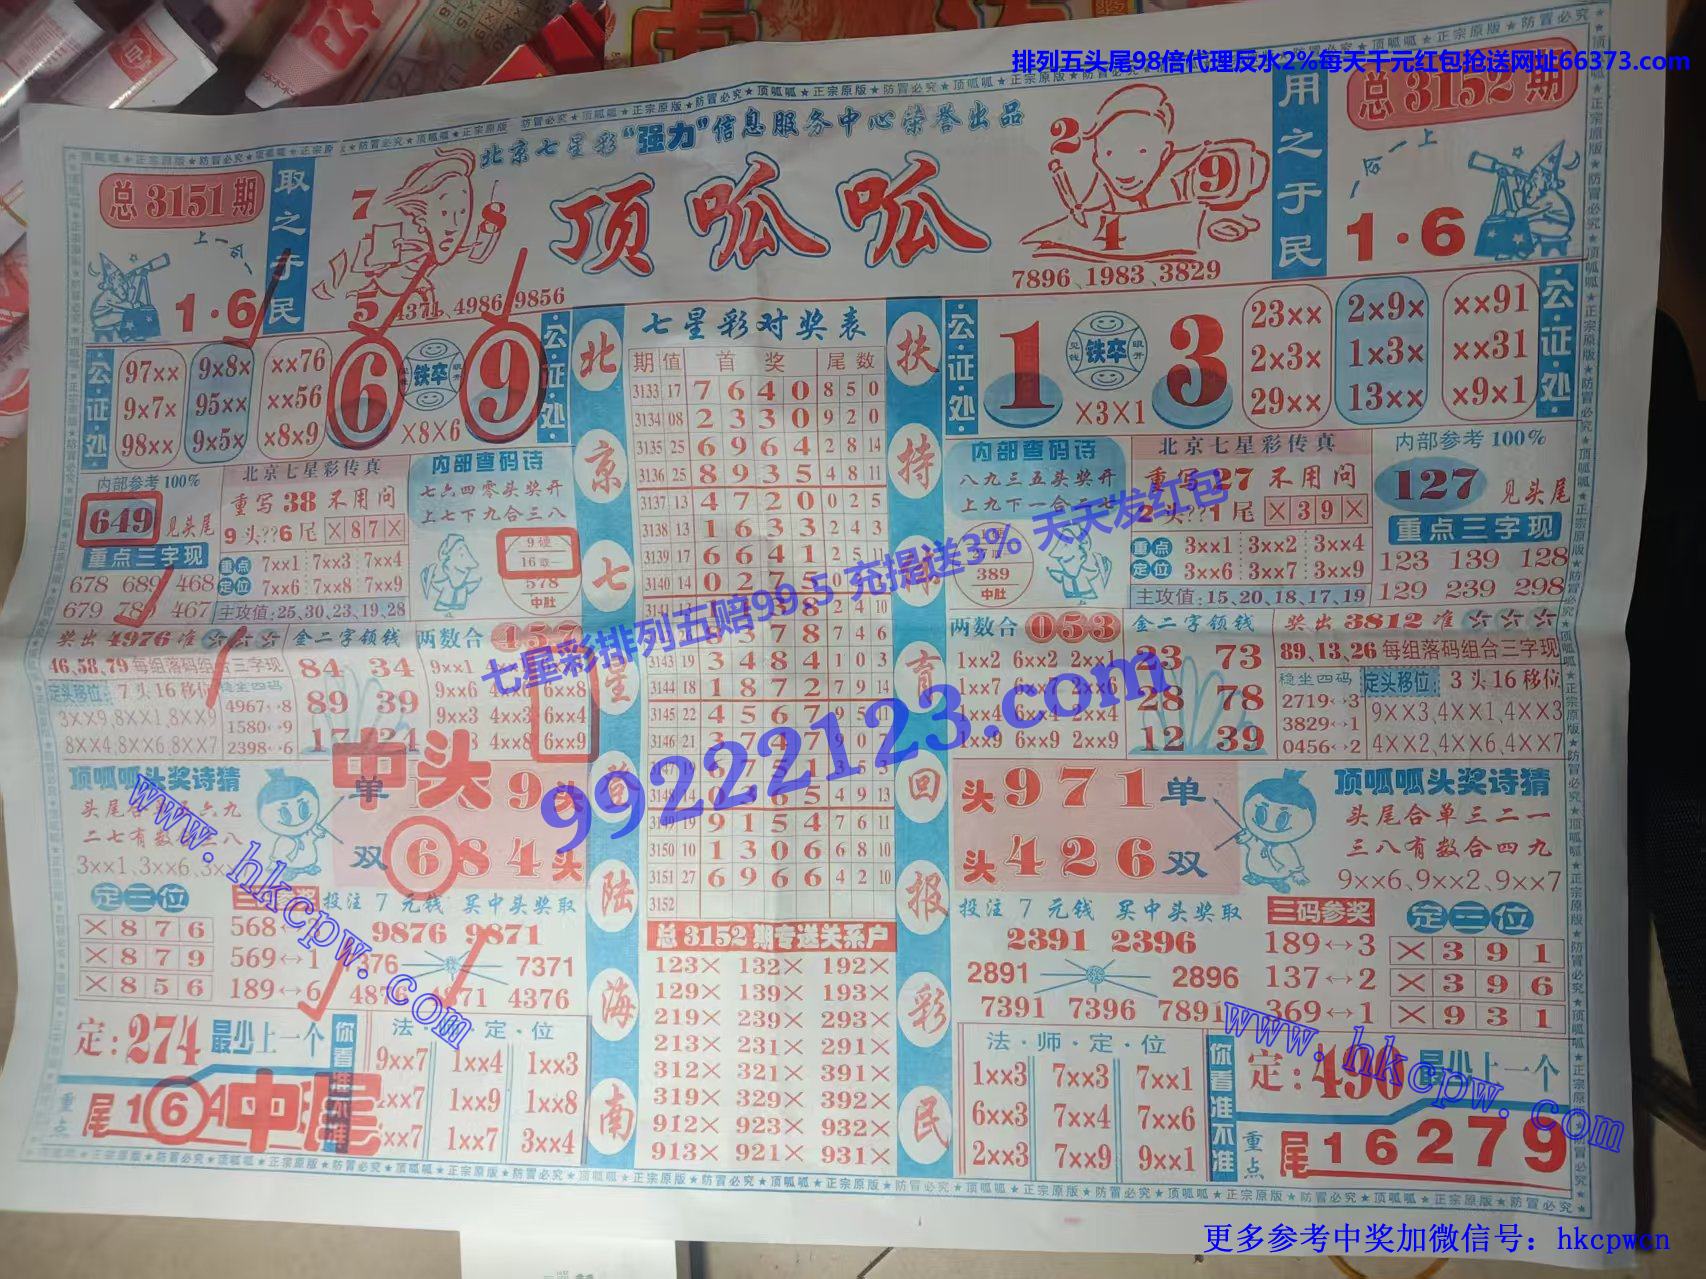 排列五头尾98倍代理反水2%每天千元红包抢送网址66373.com
北京七星彩“强力”信息服务中心荣誉出品
顶呱呱
总3151期
取之于民
上一合一
1·6
7 8
5
4371、4986、9856
2 9
4
7896、1983、3829
用之于民
总3152期
合一上
1·6
公·证·处
97×× 9×8× ××76
9×7× 95×× ××56
98×× 9×5× ×8×9
6 铁卒 9
×8×6
公·证·处
内部参考100%
649 见头尾
重点三字现
678 689 468
679 467
北京七星彩传真
重写38不用问
9头??6尾 ×87×
重点定位
7××1 7××3 7××4
7××6 7××8 7××9
主攻值:25、30、23、19、28
内部查码诗
七六四零头奖开
上七下九合三八
9硬
578
中肚
奖出4976准
46、58、79每组落码组合三字现
定头移位:7头16移位
3××9、8××1、8××9
8××4、8××6、8××7
稳坐四码
4967↔8
1580↔9
2398↔6
金二字领钱
84 34
89 39
两数合 457
9××1
9××6 6××8
9××3 4××3 6××4
4××8 6××9
顶呱呱头奖诗猜
二七有数
3××1、3××6、
单 中头 9头
双 684头
定三位
×876
×879
×856
568
569↔1
189↔6
投注7元钱 买中头奖取
9876 9871
7371
4376
定:274 最少上一个
你看准不准
重点 尾16 中尾
法·师·定·位
9××7 1××4 1××3
1××9 1××8
1××7 3××4
北京七星
海南
七星彩对奖表
期 值 首奖 尾数
3133 17 7 6 4 0 8 5 0
3134 08 2 3 3 0 9 2 0
3135 25 6 9 6 4 2 8 14
3136 25 8 9 3 5 4 8 11
3137 13 4 7 2 0 0 2 5
3138 13 1 6 3 3 2 4 3
3139 17 6 6 4 1 2 5 11
3140 14 0 2 7 5
3143 19 3 4 8 4 1 0 3
3144 18 1 8 7 2 7 9 14
3145 22 4 5 6 7 9 5 11
3146 21 3 7 4 7
3149 19 9 1 5 4 7 6 11
3150 10 1 3 0 6 6 8 10
3151 27 6 9 6 6 4 2 10
3152
总3152期专送关系户
123× 132× 192×
129× 139× 193×
219× 239× 293×
213× 231× 291×
312× 321× 391×
319× 329× 392×
912× 923× 932×
913× 921× 931×
扶持
育回报彩民
公·证·处
1 铁卒 3
×3×1
23×× 2×9× ××91
2×3× 1×3× ××31
29×× 13×× ×9×1
公·证·处
内部查码诗
八九三五头奖开
389
中肚
北京七星彩传真
重写27不用问
2头??1尾 ×39×
重点定位
3××1 3××2 3××4
3××6 3××7 3××9
主攻值:15、20、18、17、19
内部参考100%
127 见头尾
重点三字现
123 139 128
129 239 298
两数合 053
1××2 6××2 2××1
1××7 2××6
1××4 6××4 2××4
1××9 6××9 2××9
金二字领钱
23 73
28 78
12 39
奖出3812准
89、13、26每组落码组合三字现
稳坐四码
2719↔3
3829↔1
0456↔2
定头移位:3头16移位
9××3、4××1、4××3
4××2、4××6、4××7
头971单
头426双
顶呱呱头奖诗猜
头尾合单三二一
三八有数合四九
9××6、9××2、9××7
投注7元钱 买中头奖取
2391 2396
2891 2896
7391 7396 7891
三码参奖
189↔3
137↔2
369↔1
定三位
×391
×396
×931
法·师·定·位
1××3 7××3 7××1
6××3 7××4 7××6
2××3 7××9 9××1
你看准不准
定:496 最少上一个
重点 尾16279
七星彩排列五赔99.5 充提送3% 天天发红包
99222123.com
www.hkcpw.com
www.hkcpw.com
更多参考中奖加微信号：hkcpwcn